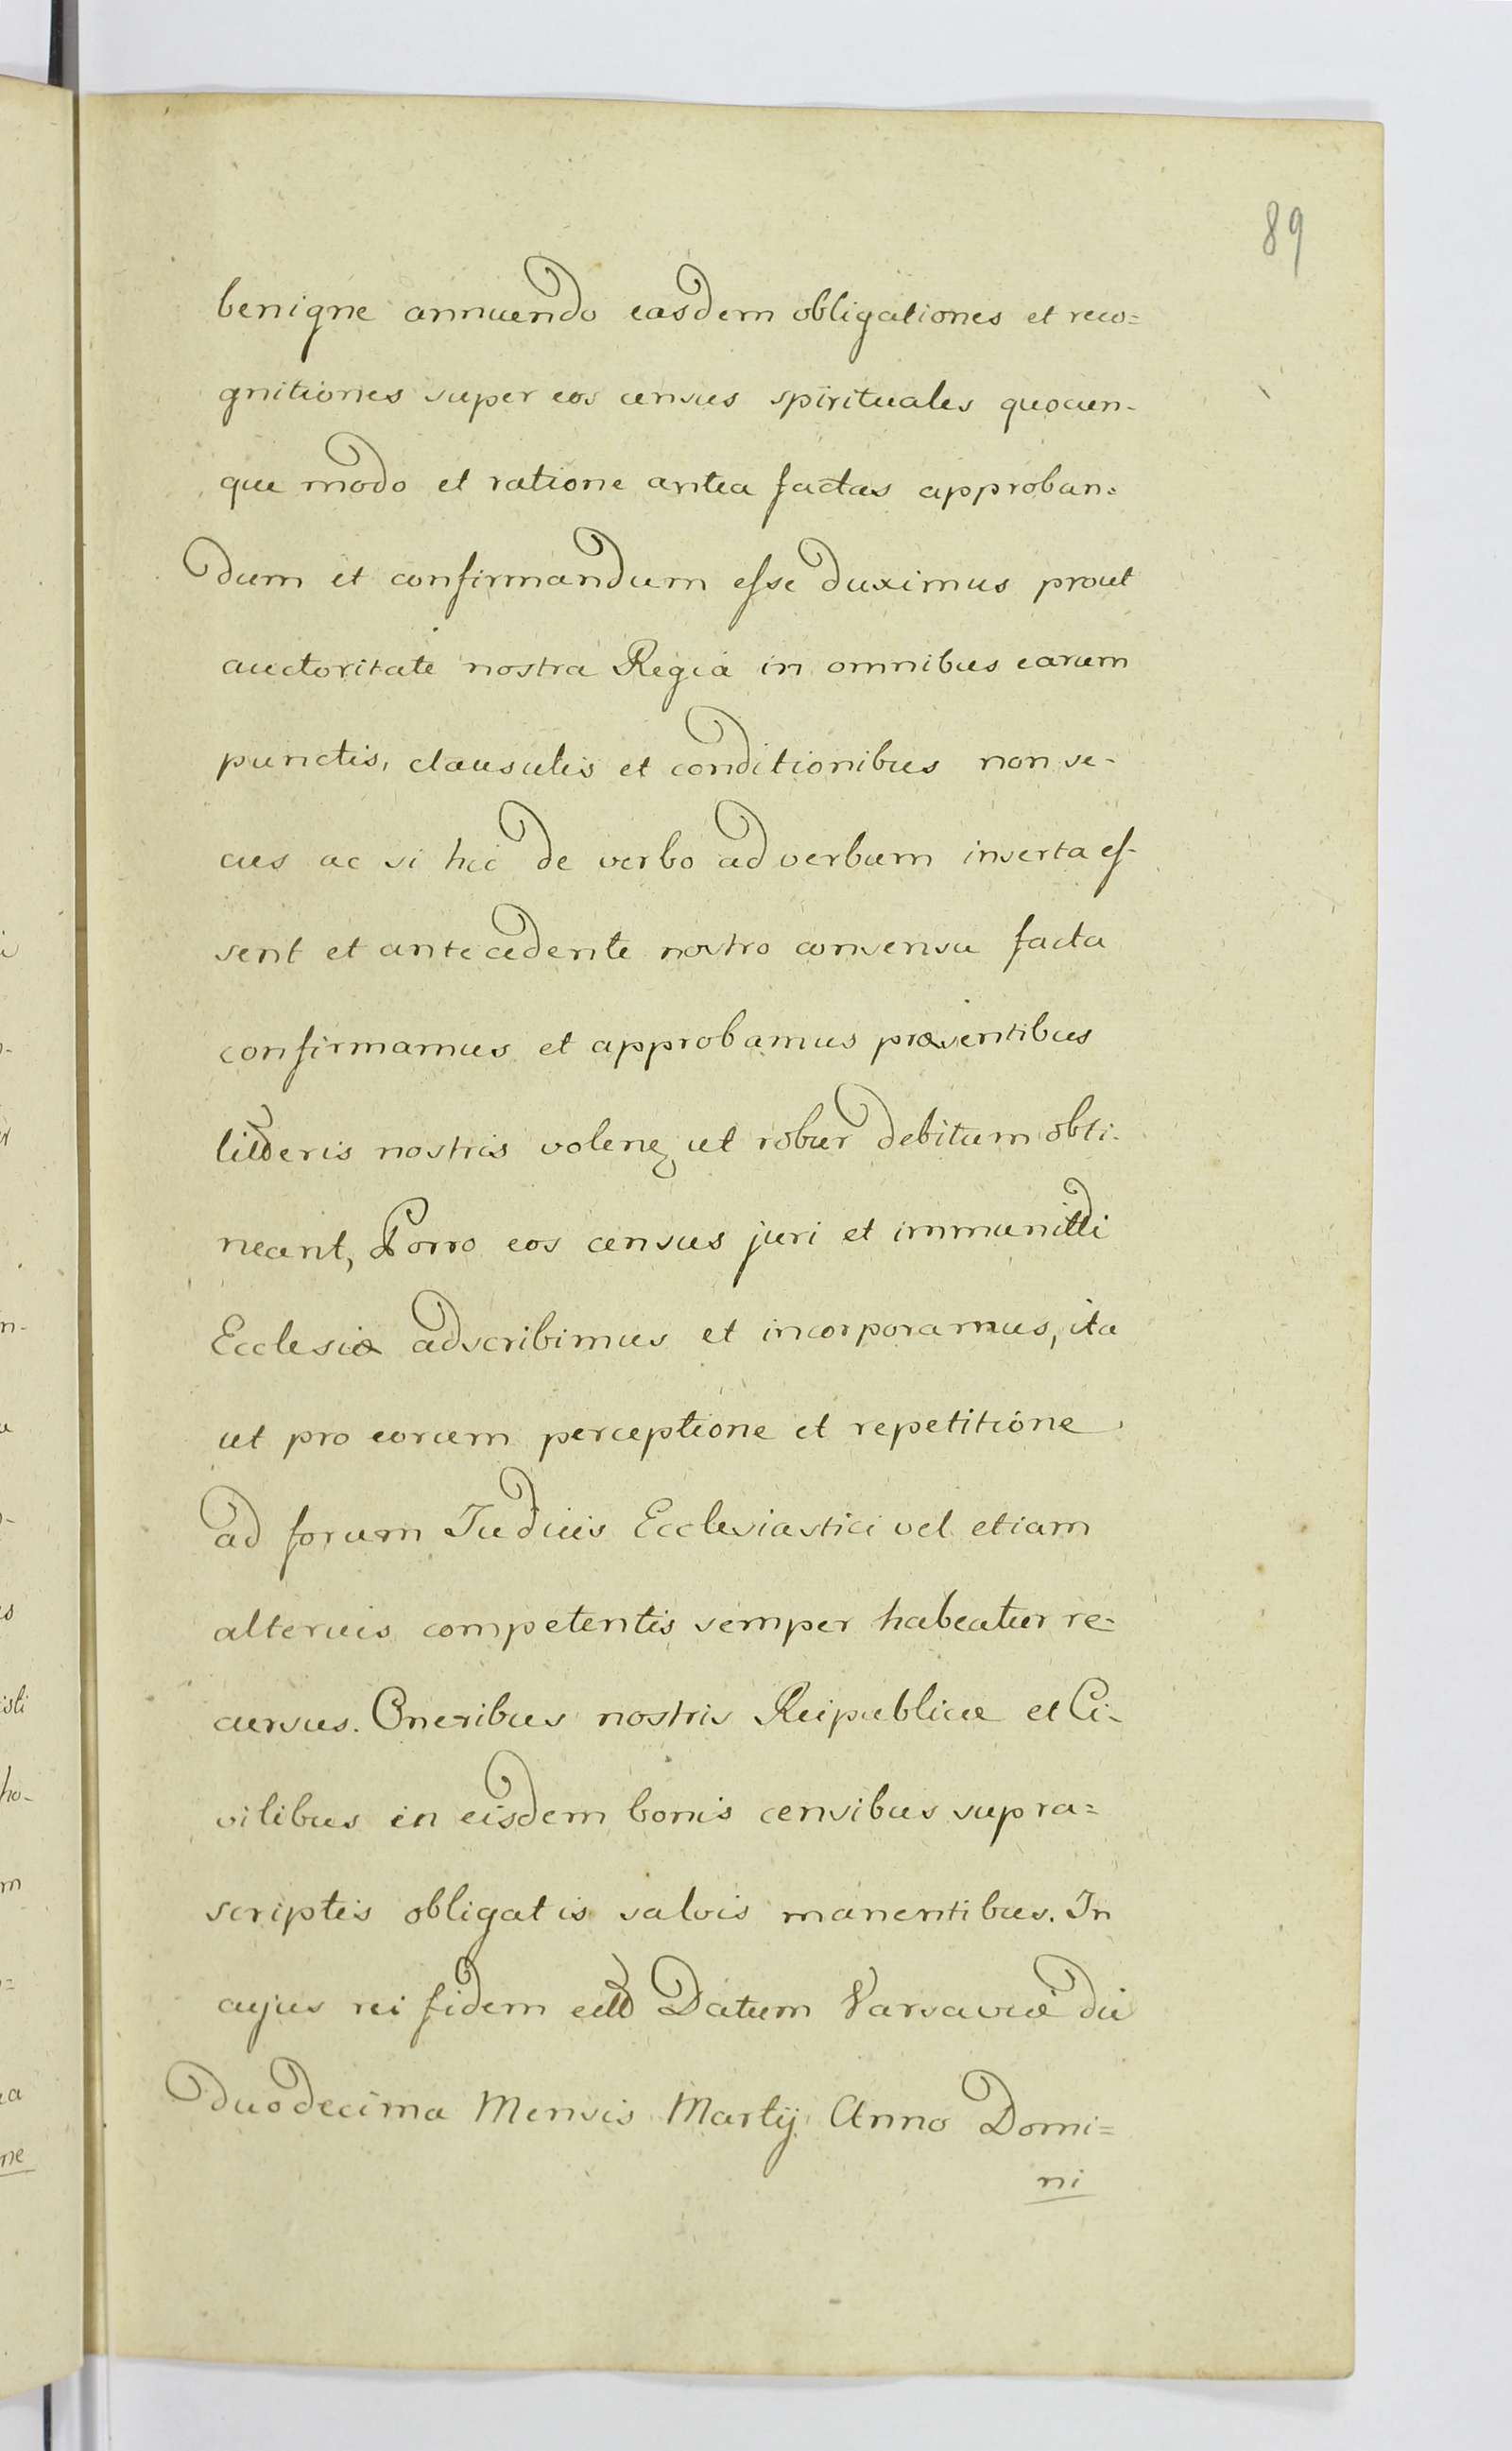 89
benigne annuendo easdem obligationes et reco=
gnitiones super eos census spirituales quocun-
que modo et ratione antea factas approban=
dum et confirmandum esse duximus prout
auctoritate nostra Regia in omnibus earum
punctis, clausulis et conditionibus non se-
cus ac si hic de verbo ad verbum inserta es-
sent et antecedente nostro consensu facta
confirmamus et approbamus præsentibus
nostris volen ut robur debitum obti-
neant, Porro eos census juri et
Ecclesiæ adscribimus et incorporamus, ita
ut pro eorum perceptione et repetitione
ad forum Judicis Ecclesiastici vel etiam
alterius competentis semper habeatur re=
cursus. Oneribus nostris Reipublicæ et Ci-
vilibus in eisdem bonis censibus supra=
scriptis obligatis salvis manentibus. In
cujus rei fidem Datum Varsaviæ die
duodecima Mensis Martij Anno Domi=
ni